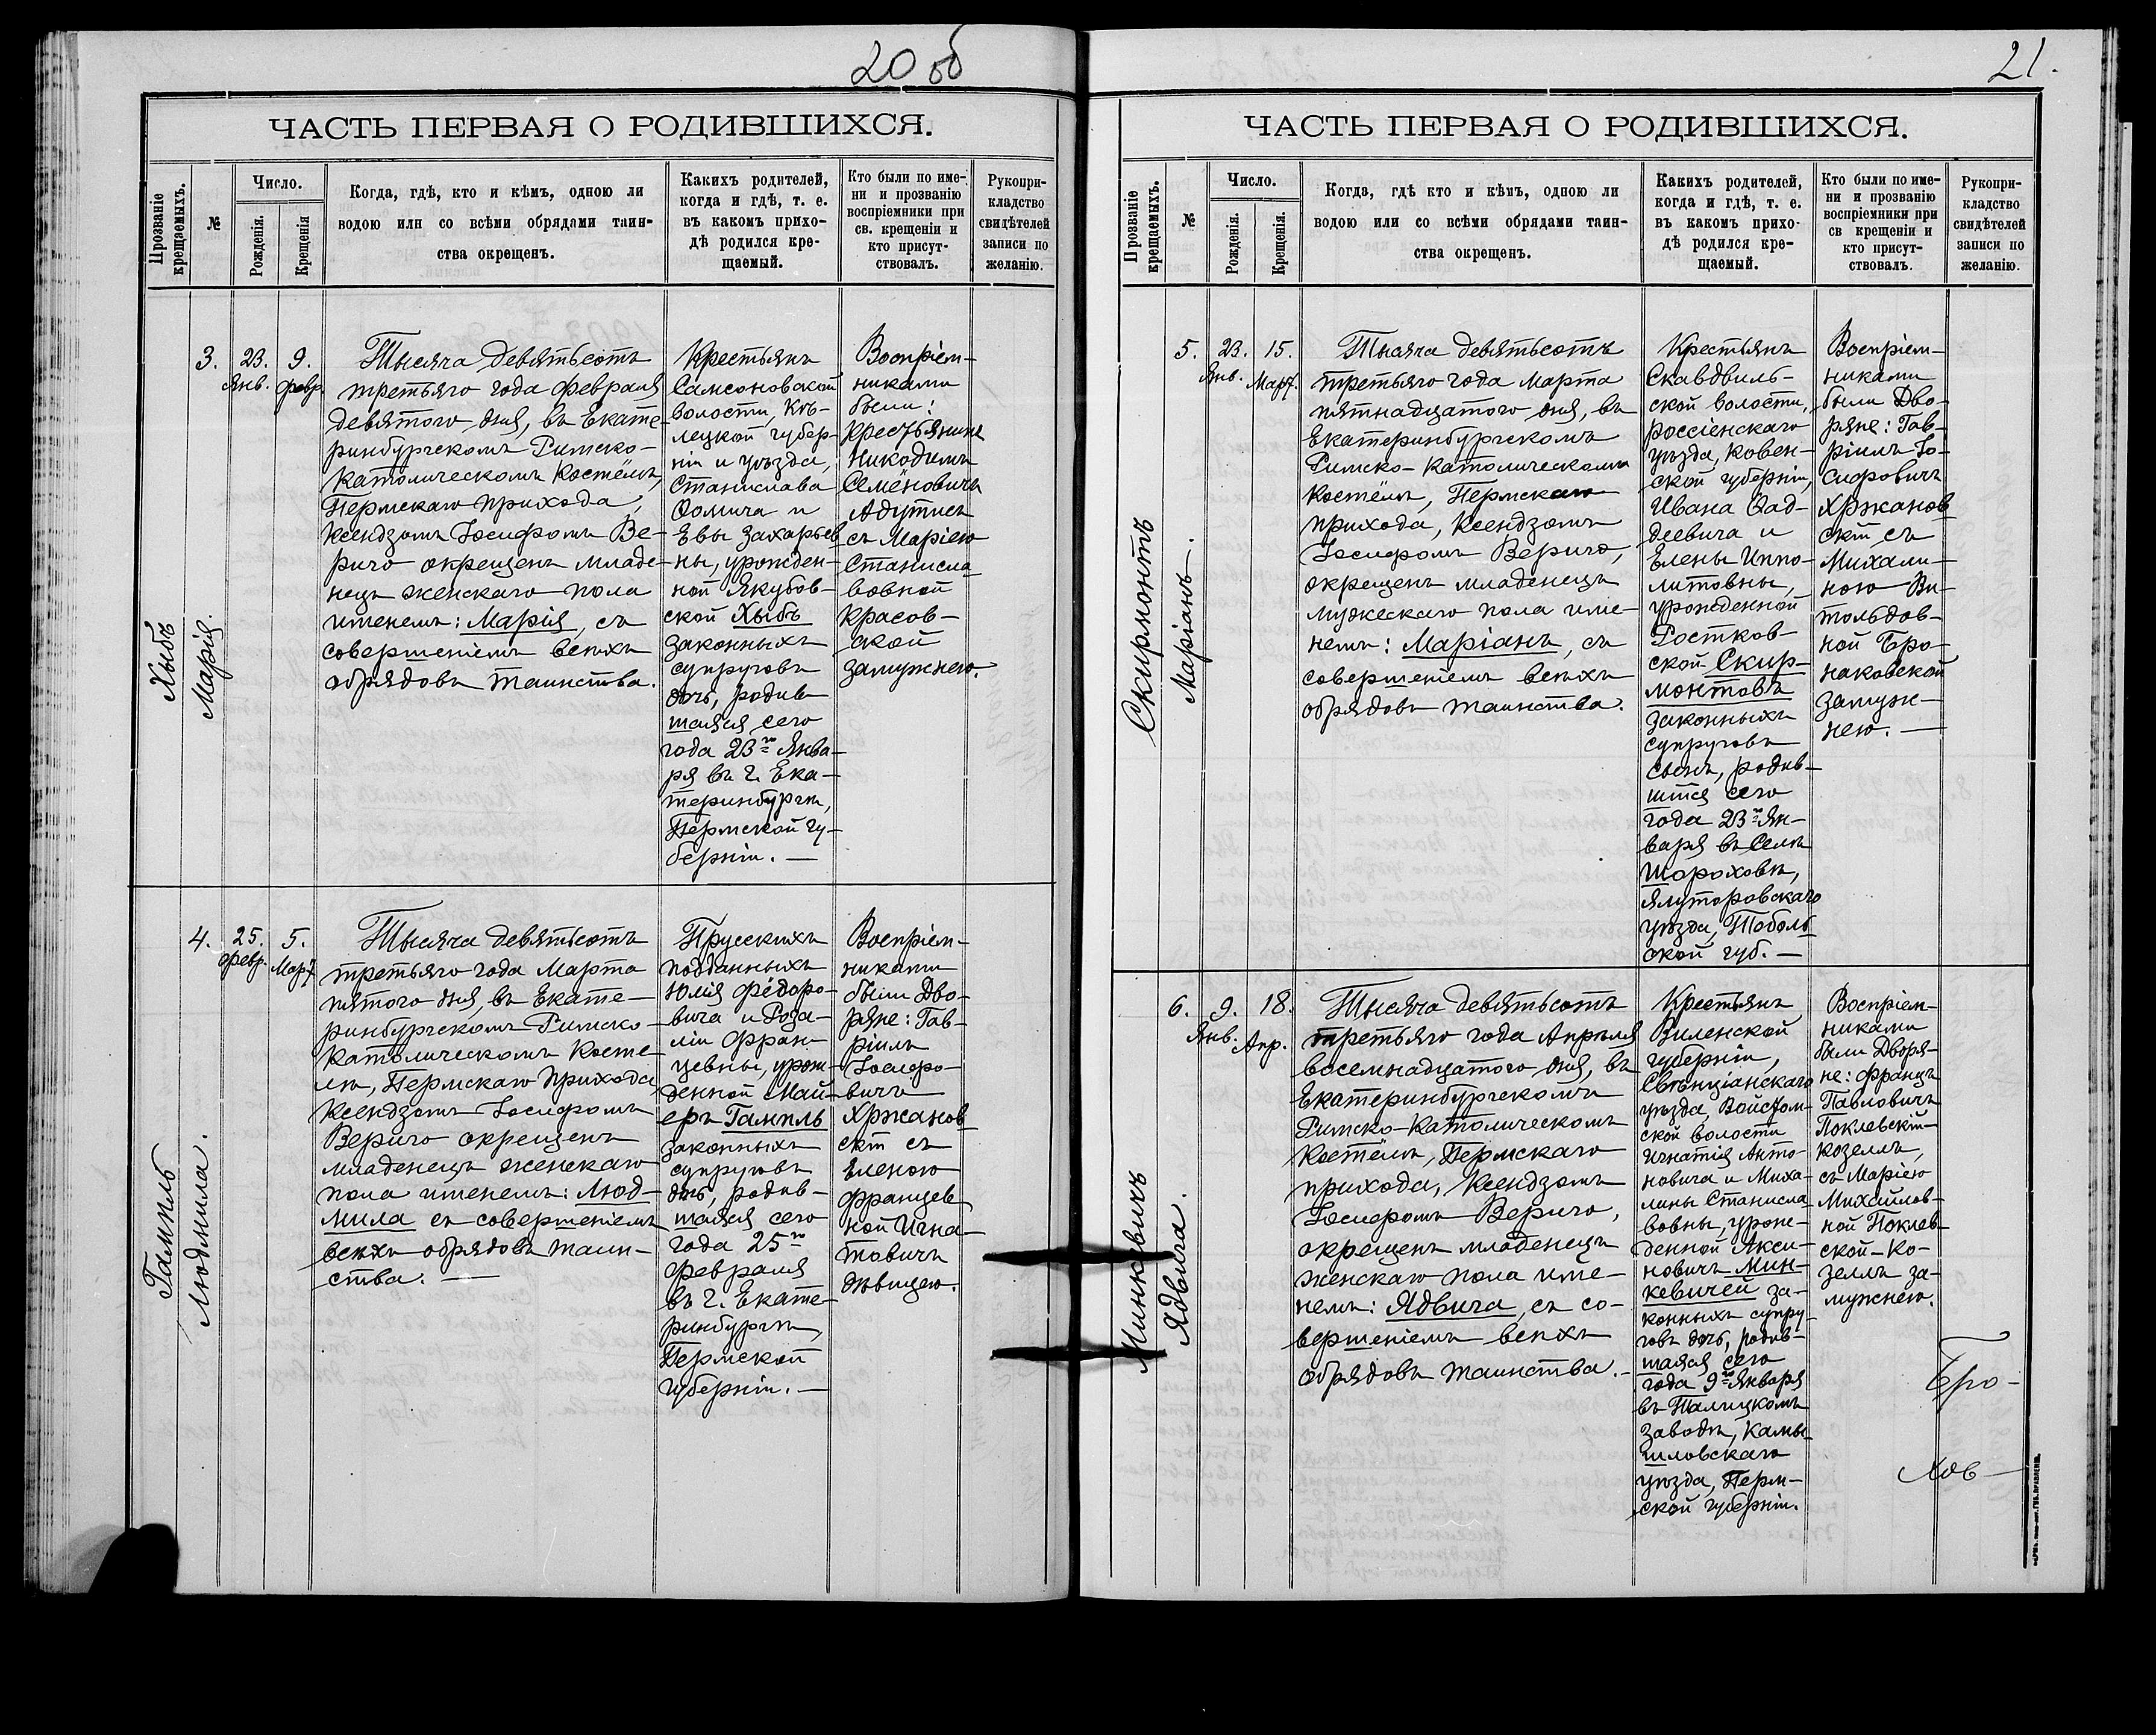 20 об
ЧАСТЬ ПЕРВАЯ О РОДИВШИХСЯ.
Прозваніе
крещаемыхъ.
№
Число.
Рожденія.
Крещенія
Когда, гдѣ, кто и кѣмъ, одною ли
водою или со всѣми обрядами таин-
ства окрещенъ.
Какихъ родителей,
когда и гдѣ, т. е.
въ какомъ прихо-
дѣ родился кре-
щаемый.
Кто были по име-
ни и прозванію
воспріемники при
св. крещеніи и
кто присут-
ствовалъ.
Рукопри-
кладство
свидѣтелей
записи по
желанію.
Хыбъ
Марія.
3.
23.
Янв.
9.
февр.
Тысяча девятьсотъ
третьяго года февраля
девятого дня, въ Екате-
ринбургскомъ Римско-
Католическомъ Костёлѣ,
Пермскаго прихода,
Ксендзомъ Іосифомъ Ве-
риго окрещенъ младе-
нецъ женскаго пола
именемъ: Марія, съ
совершеніемъ всѣхъ
обрядовъ таинства.
Крестьянъ
Самсоновской
волости, Кѣ-
лецкой губер-
ніи и уѣзда,
Станислава
Ѳомича и
Евы Захарьев-
ны, урожден-
ной Якубов-
ской Хыбъ
законныхъ
супруговъ
дочь, родив-
шаяся сего
года 23го Янва-
ря въ г. Ека-
теринбургѣ,
Пермской гу-
берніи. —
Воспріем-
никами
были:
Крестьянинъ
Никодимъ
Семёновичъ
Адутисъ
съ Маріею
Станисла-
вовной
Красов-
ской
замужнею.
Гампль
Людмила.
4.
25.
февр.
5.
Март.
Тысяча девятьсотъ
третьяго года Марта
пятого дня, въ Екате-
ринбургскомъ Римско-
Католическомъ Косте-
лѣ, Пермскаго прихода
Ксендзомъ Іосифомъ
Вериго окрещенъ
младенецъ женскаго
пола именемъ: Люд-
мила съ совершеніемъ
всѣхъ обрядовъ таин-
ства. —
Прусскихъ
подданныхъ
Юлія Фёдоро-
вича и Роза-
ліи Фран-
цевны, урож-
денной Май-
еръ Гампль
законныхъ
супруговъ
дочь, родив-
шаяся сего
года 25го
февраля
въ г. Екате-
ринбургѣ,
Пермской
губерніи. —
Воспріем-
никами
были Дво-
ряне: Гав-
ріилъ
Іосифо-
вичъ
Хржанов-
скій съ
Еленою
Францев-
ной Игна-
товичъ
дѣвицею.
21.
ЧАСТЬ ПЕРВАЯ О РОДИВШИХСЯ.
Прозваніе
крещаемыхъ.
№
Число.
Рожденія.
Крещенія.
Когда, гдѣ кто и кѣмъ, одною ли
водою или со всѣми обрядами таин-
ства окрещенъ.
Какихъ родителей,
когда и гдѣ, т. е.
въ какомъ прихо-
дѣ родился кре-
щаемый.
Кто были по име-
ни и прозванію
воспріемники при
св крещеніи и
кто присут-
ствовалъ.
Рукопри-
кладство
свидѣтелей
записи по
желанію.
Скирмонтъ
Маріанъ.
5.
23.
Янв.
15.
Март.
Тысяча девятьсотъ
третьяго года Марта
пятнадцатого дня, въ
Екатеринбургскомъ
Римско-Католическомъ
Костёлѣ, Пермскаго
прихода, Ксендзомъ
Іосифомъ Вериго,
окрещенъ младенецъ
мужескаго пола име-
немъ: Маріанъ, съ
совершеніемъ всѣхъ
обрядовъ таинства.
Крестьянъ
Скавдвиль-
ской волости,
Россіенскаго
уѣзда, Ковен-
ской губерніи,
Ивана Ѳад-
деевича и
Елены Иппо-
литовны,
урожденной
Ростков-
ской Скир-
монтовъ
законныхъ
супруговъ
сынъ, родив-
шійся сего
года 23го Ян-
варя въ Селѣ
Шороховѣ,
Ялуторовскаго
уѣзда, Тоболь-
ской губ. —
Воспріем-
никами
были Дво-
ряне: Гав-
ріилъ Іо-
сифовичъ
Хржанов-
скій съ
Михали-
ною Ви-
тольдов-
ной Бро-
наковской
замуж-
нею. —
Минкевичъ
Ядвига.
6.
9.
Янв.
18.
Апр.
Тысяча девятьсотъ
третьяго года Апрѣля
восемнадцатого дня, въ
Екатеринбургскомъ
Римско-Католическомъ
Костёлѣ, Пермскаго
прихода, Ксендзомъ
Іосифомъ Вериго,
окрещенъ младенецъ
женскаго пола име-
немъ: Ядвига, съ со-
вершеніемъ всѣхъ
обрядовъ таинства. —
Крестьянъ
Виленской
губерніи,
Свѣнціанскаго
уѣзда Войстом-
ской волости
Игнатія Анто-
новича и Миха-
лины Станисла-
вовны, урож-
денной Акси-
новичъ Мин-
кевичей за-
конныхъ супру-
говъ дочь, родив-
шаяся сего
года 9го Января
въ Талицкомъ
заводѣ, Камы-
шловскаго
уѣзда, Перм-
ской губерніи.
Воспріем-
никами
были Дворя-
не: Францъ
Павловичъ
Поклевскій-
Козеллъ,
съ Маріею
Михайлов-
ной Поклев-
ской-Ко-
зеллъ за-
мужнею.
Бро-